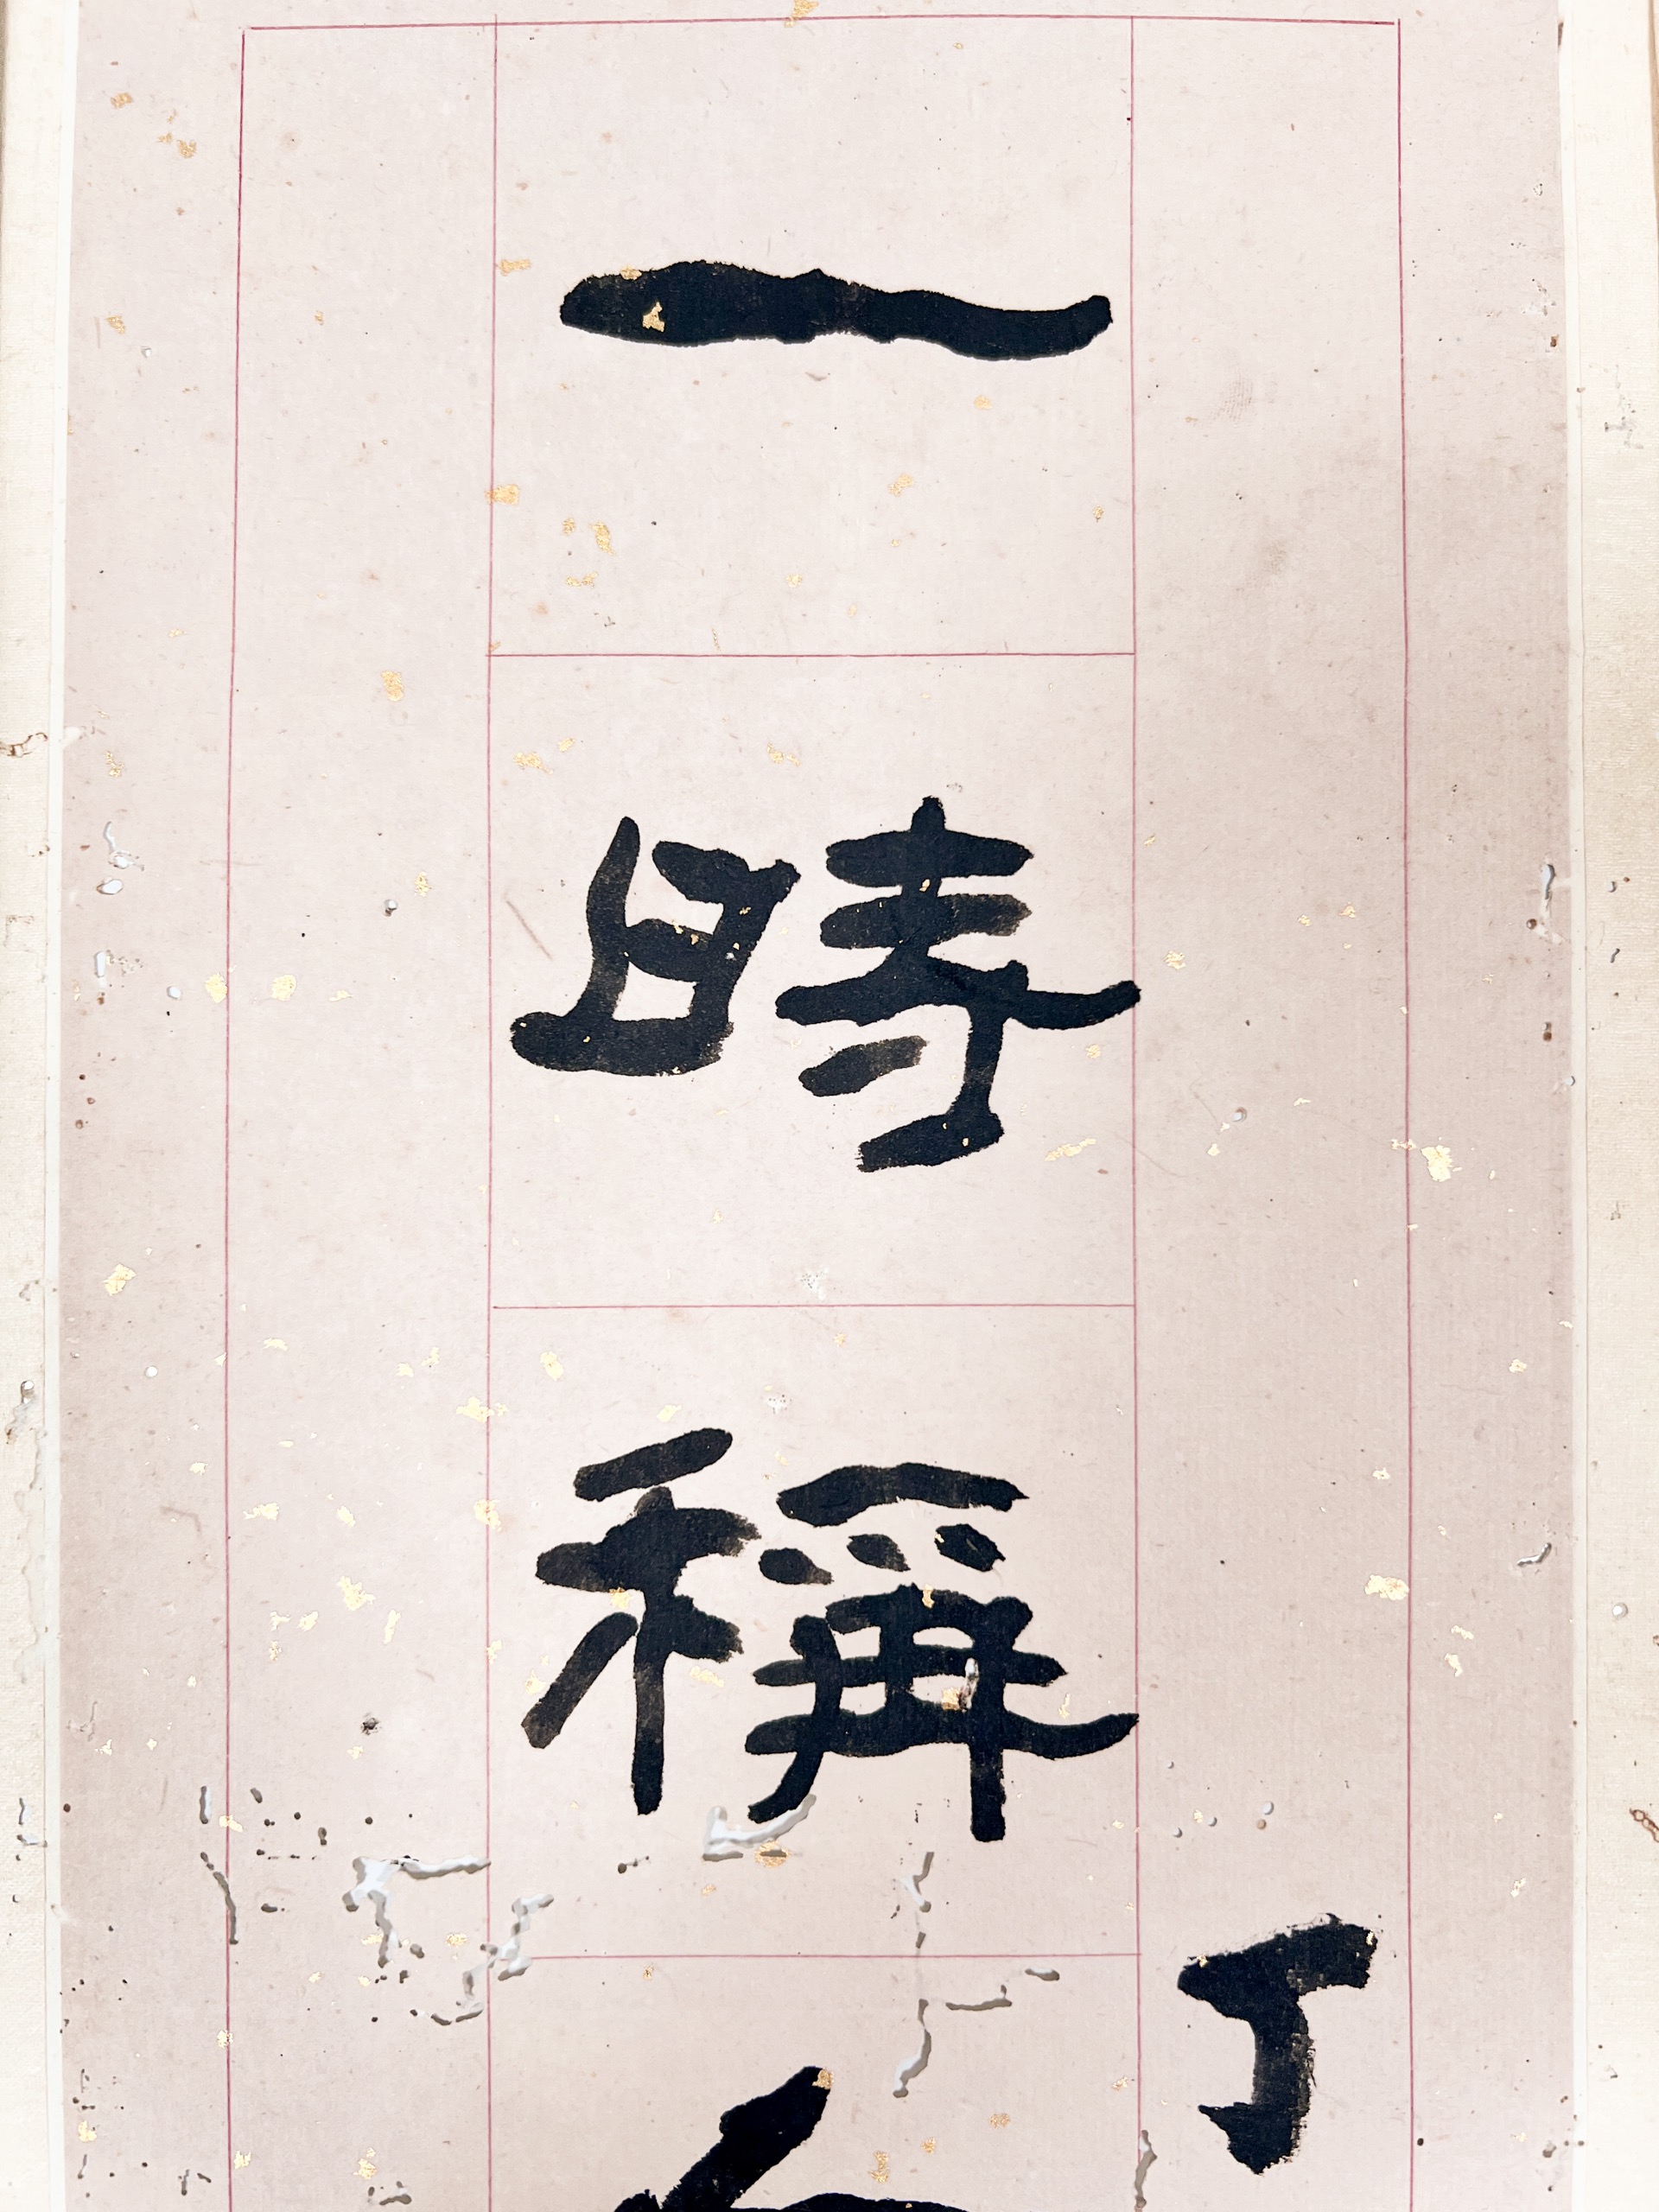 丁
一時稱